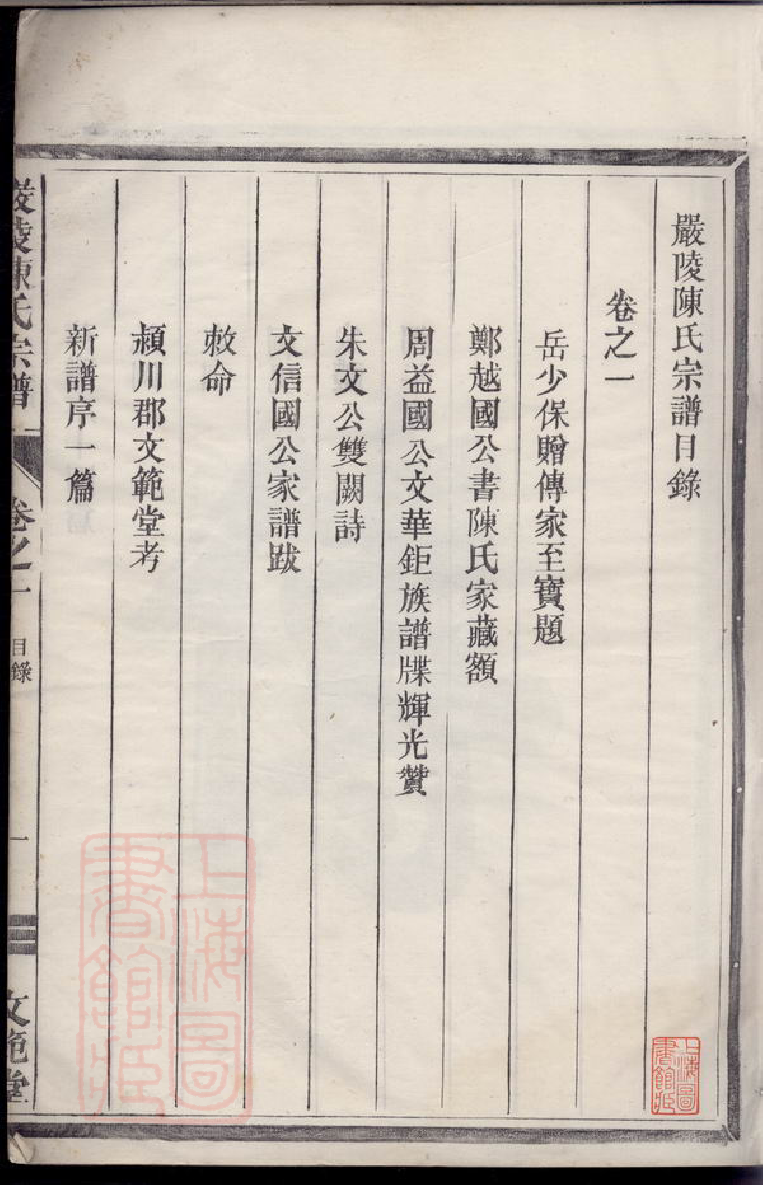 嚴陵陳氏宗譜目錄
卷之一
岳少保贈傳家至寶題
鄭越國公書陳氏家藏額
周益國公文華鉅族譜牒輝光贊
朱文公雙闕詩
文信國公家譜跋
敕命
潁川郡文範堂考
新譜序一篇
嚴陵陳氏宗譜
卷之一
目錄
一
文範堂
上海圖書館藏
上海圖書館藏